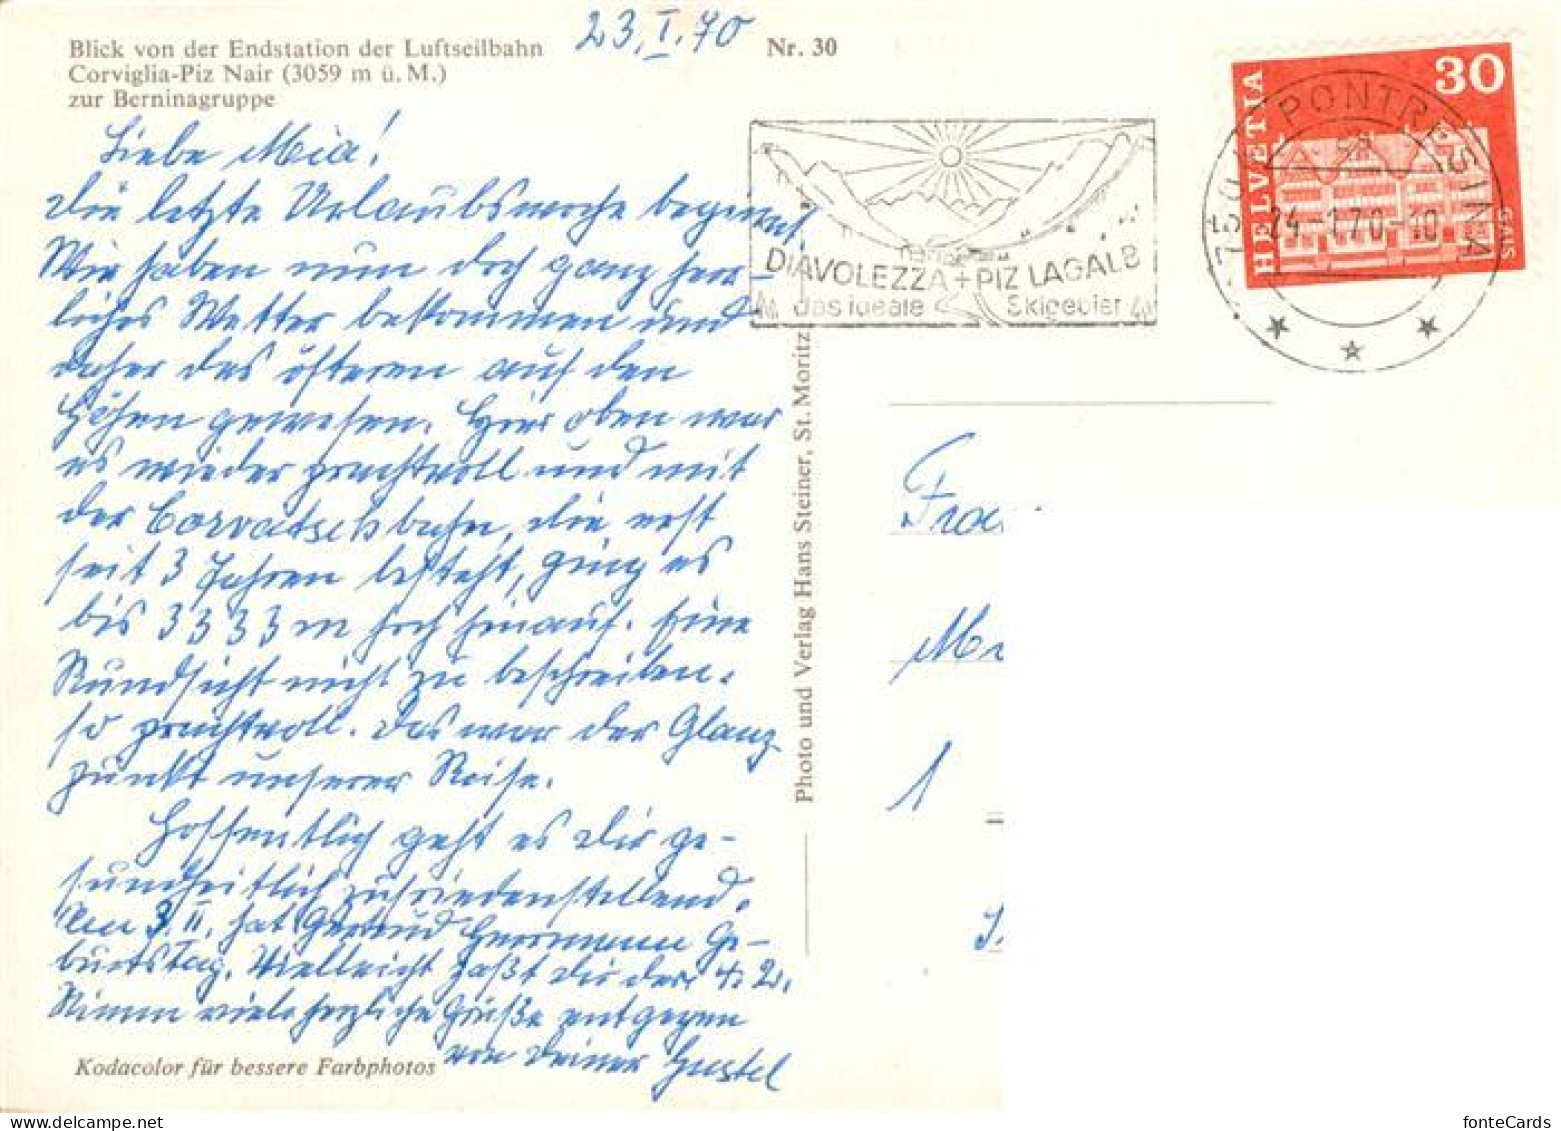 23.I.70
Blick von der Endstation der Luftseilbahn
Corviglia-Piz Nair (3059 m ü. M.)
zur Berninagruppe
Nr. 30
Liebe Mia!
Die letzte Urlaubswoche beginnt.
Wir haben nun doch ganz herr-
liches Wetter bekommen und
daher des öfteren auf den
Höhen gewesen. Hier oben war
es wieder prachtvoll und mit
der Corvatschbahn, die erst
seit 3 Jahren besteht, ging es
bis 3333 m hoch hinauf. Eine
Rundsicht nicht zu beschreiben.
so prachtvoll. Das war der Glanz-
punkt unserer Reise.
Hoffentlich geht es Dir ge-
sundheitlich zufriedenstellend.
Am 3.II. hat Gertrud Herrmann Ge-
burtstag. Vielleicht paßt Dir der 4.2.
Nimm viele herzliche Grüße entgegen
von Deiner Gustel
Kodacolor für bessere Farbphotos
Photo und Verlag Hans Steiner, St. Moritz
DIAVOLEZZA + PIZ LAGALB
das ideale Skigebiet
HELVETIA
30
7504 PONTRESINA
24-1.70-10
GALS
1
fonteCards